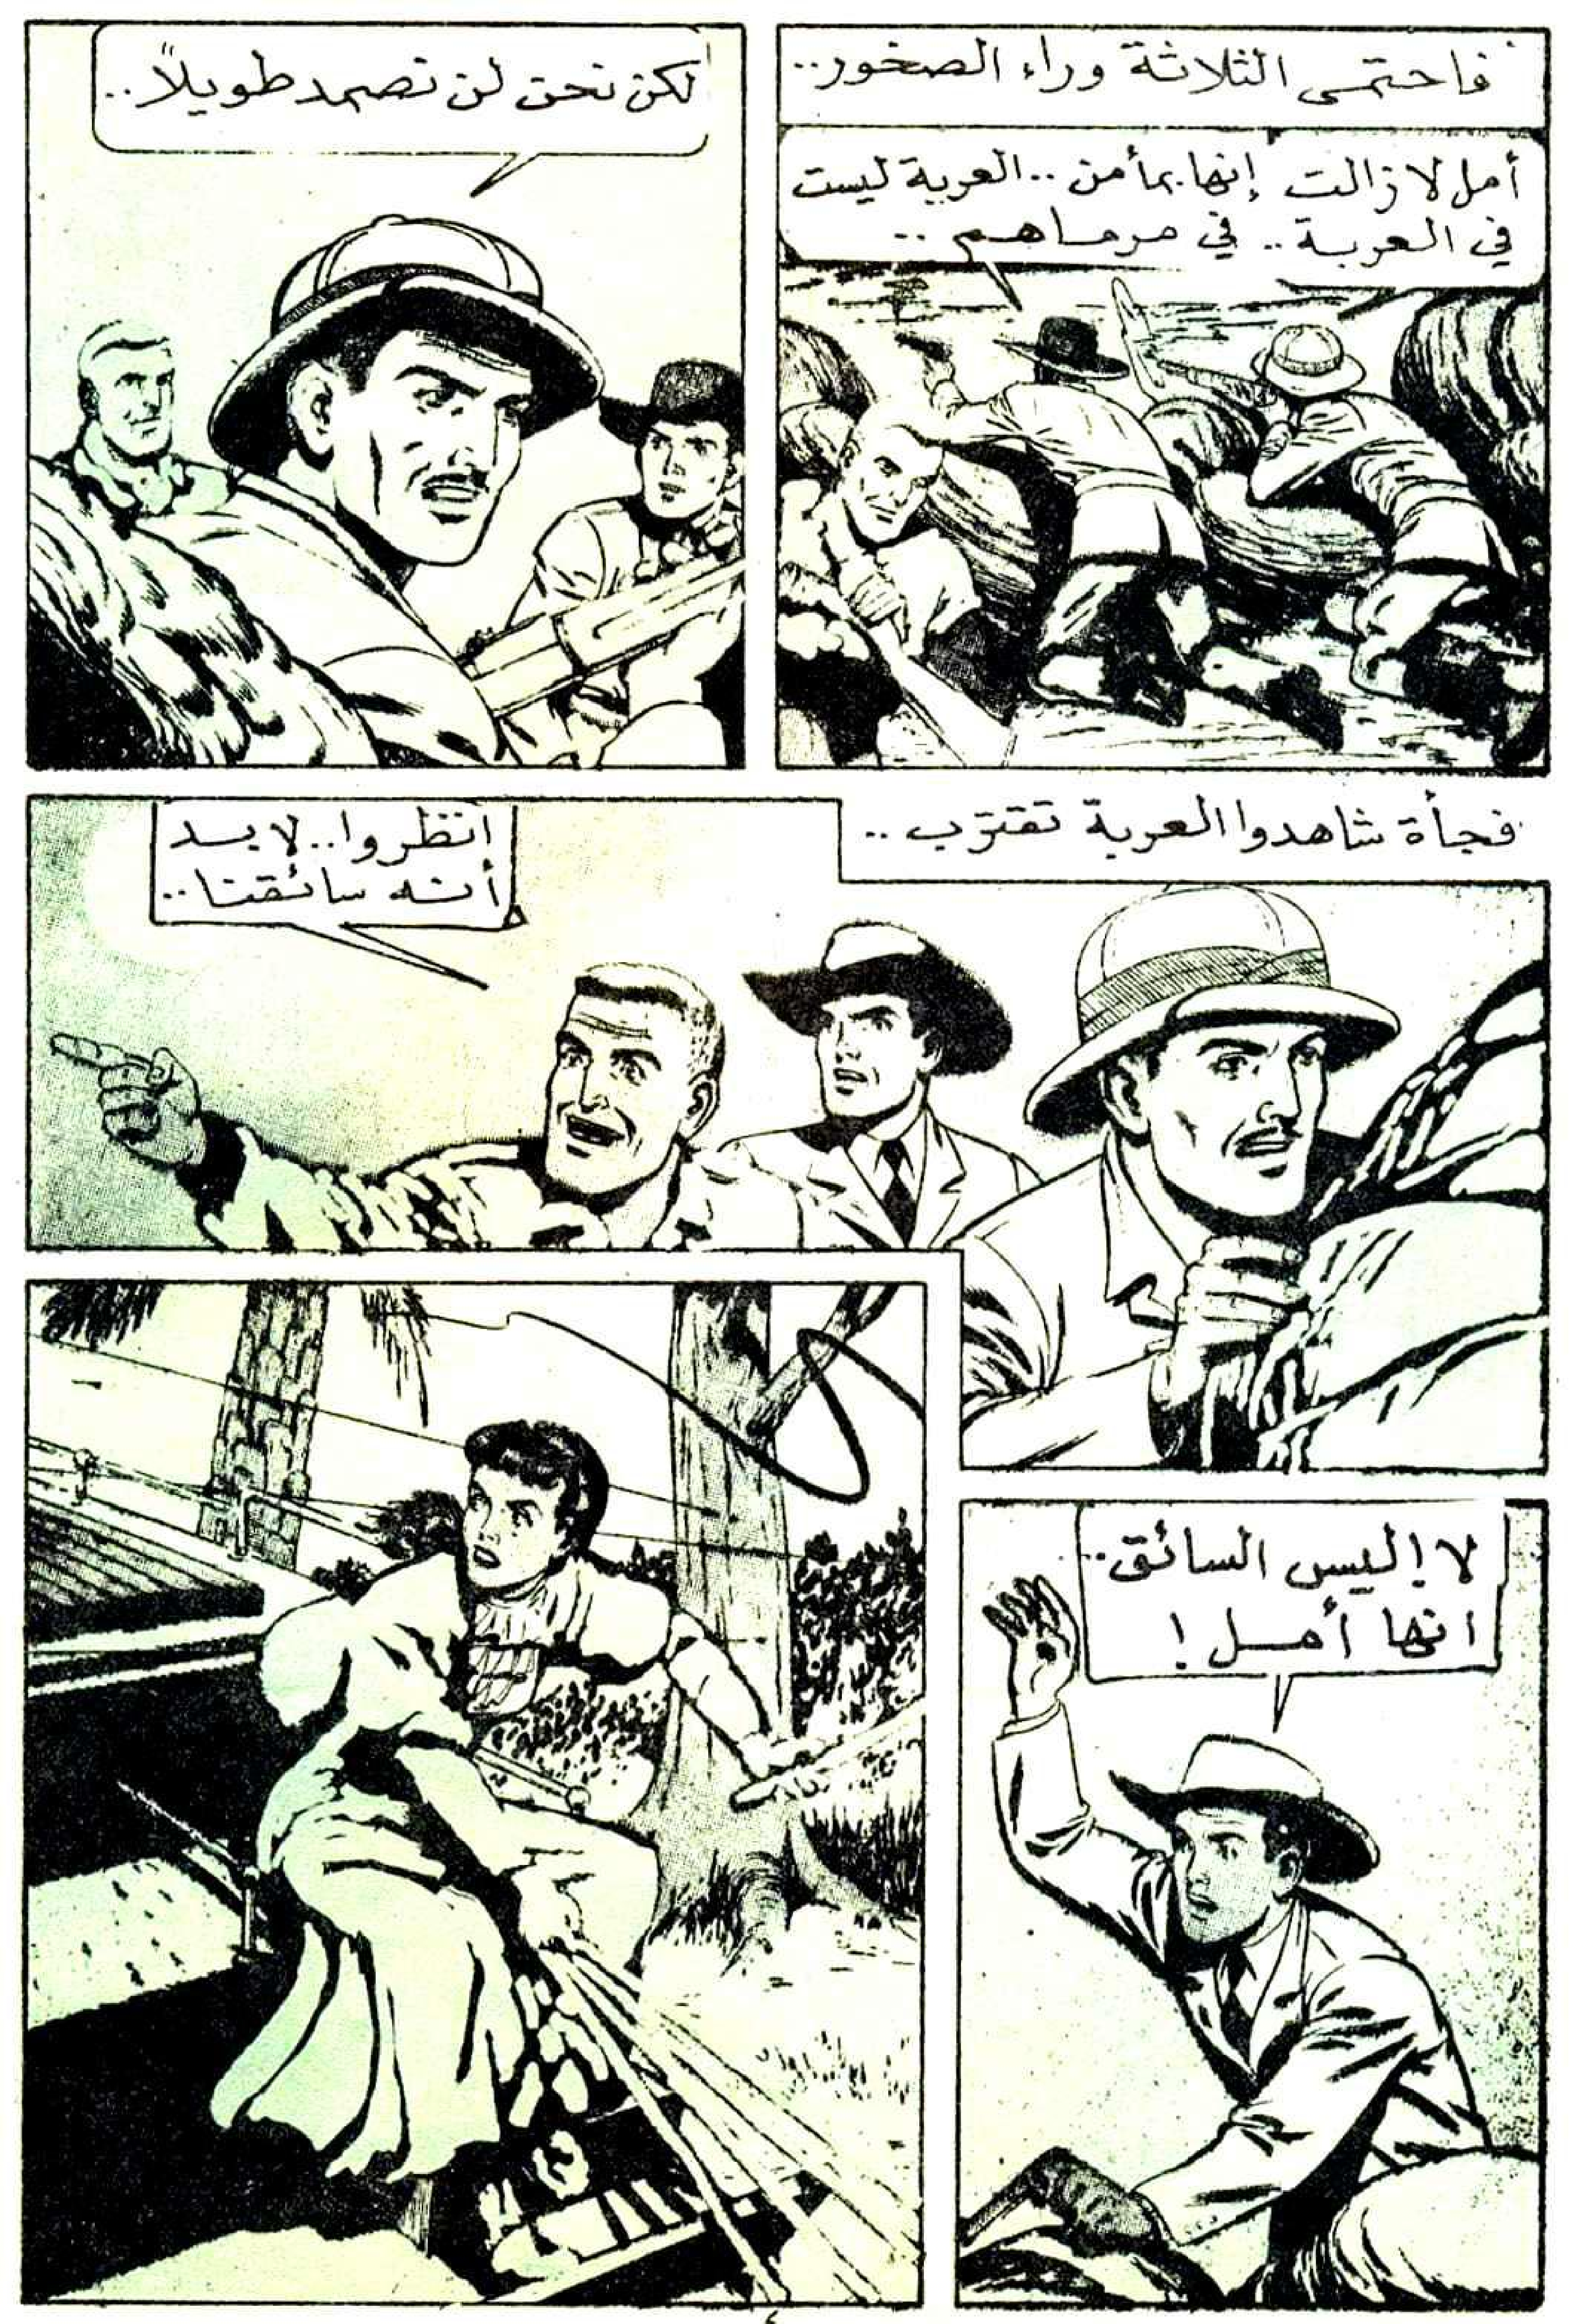 فاحتمى الثلاثة وراء الصخور..
أمل لا زالت إنها بمأمن.. العربة ليست
في العربة.. في مرماهم..
لكن نحن لن نصمد طويلاً..
فجأة شاهدوا العربة تقترب..
انظروا.. لا بد
أنه سائقنا..
لا! ليس السائق..
انها أمل!